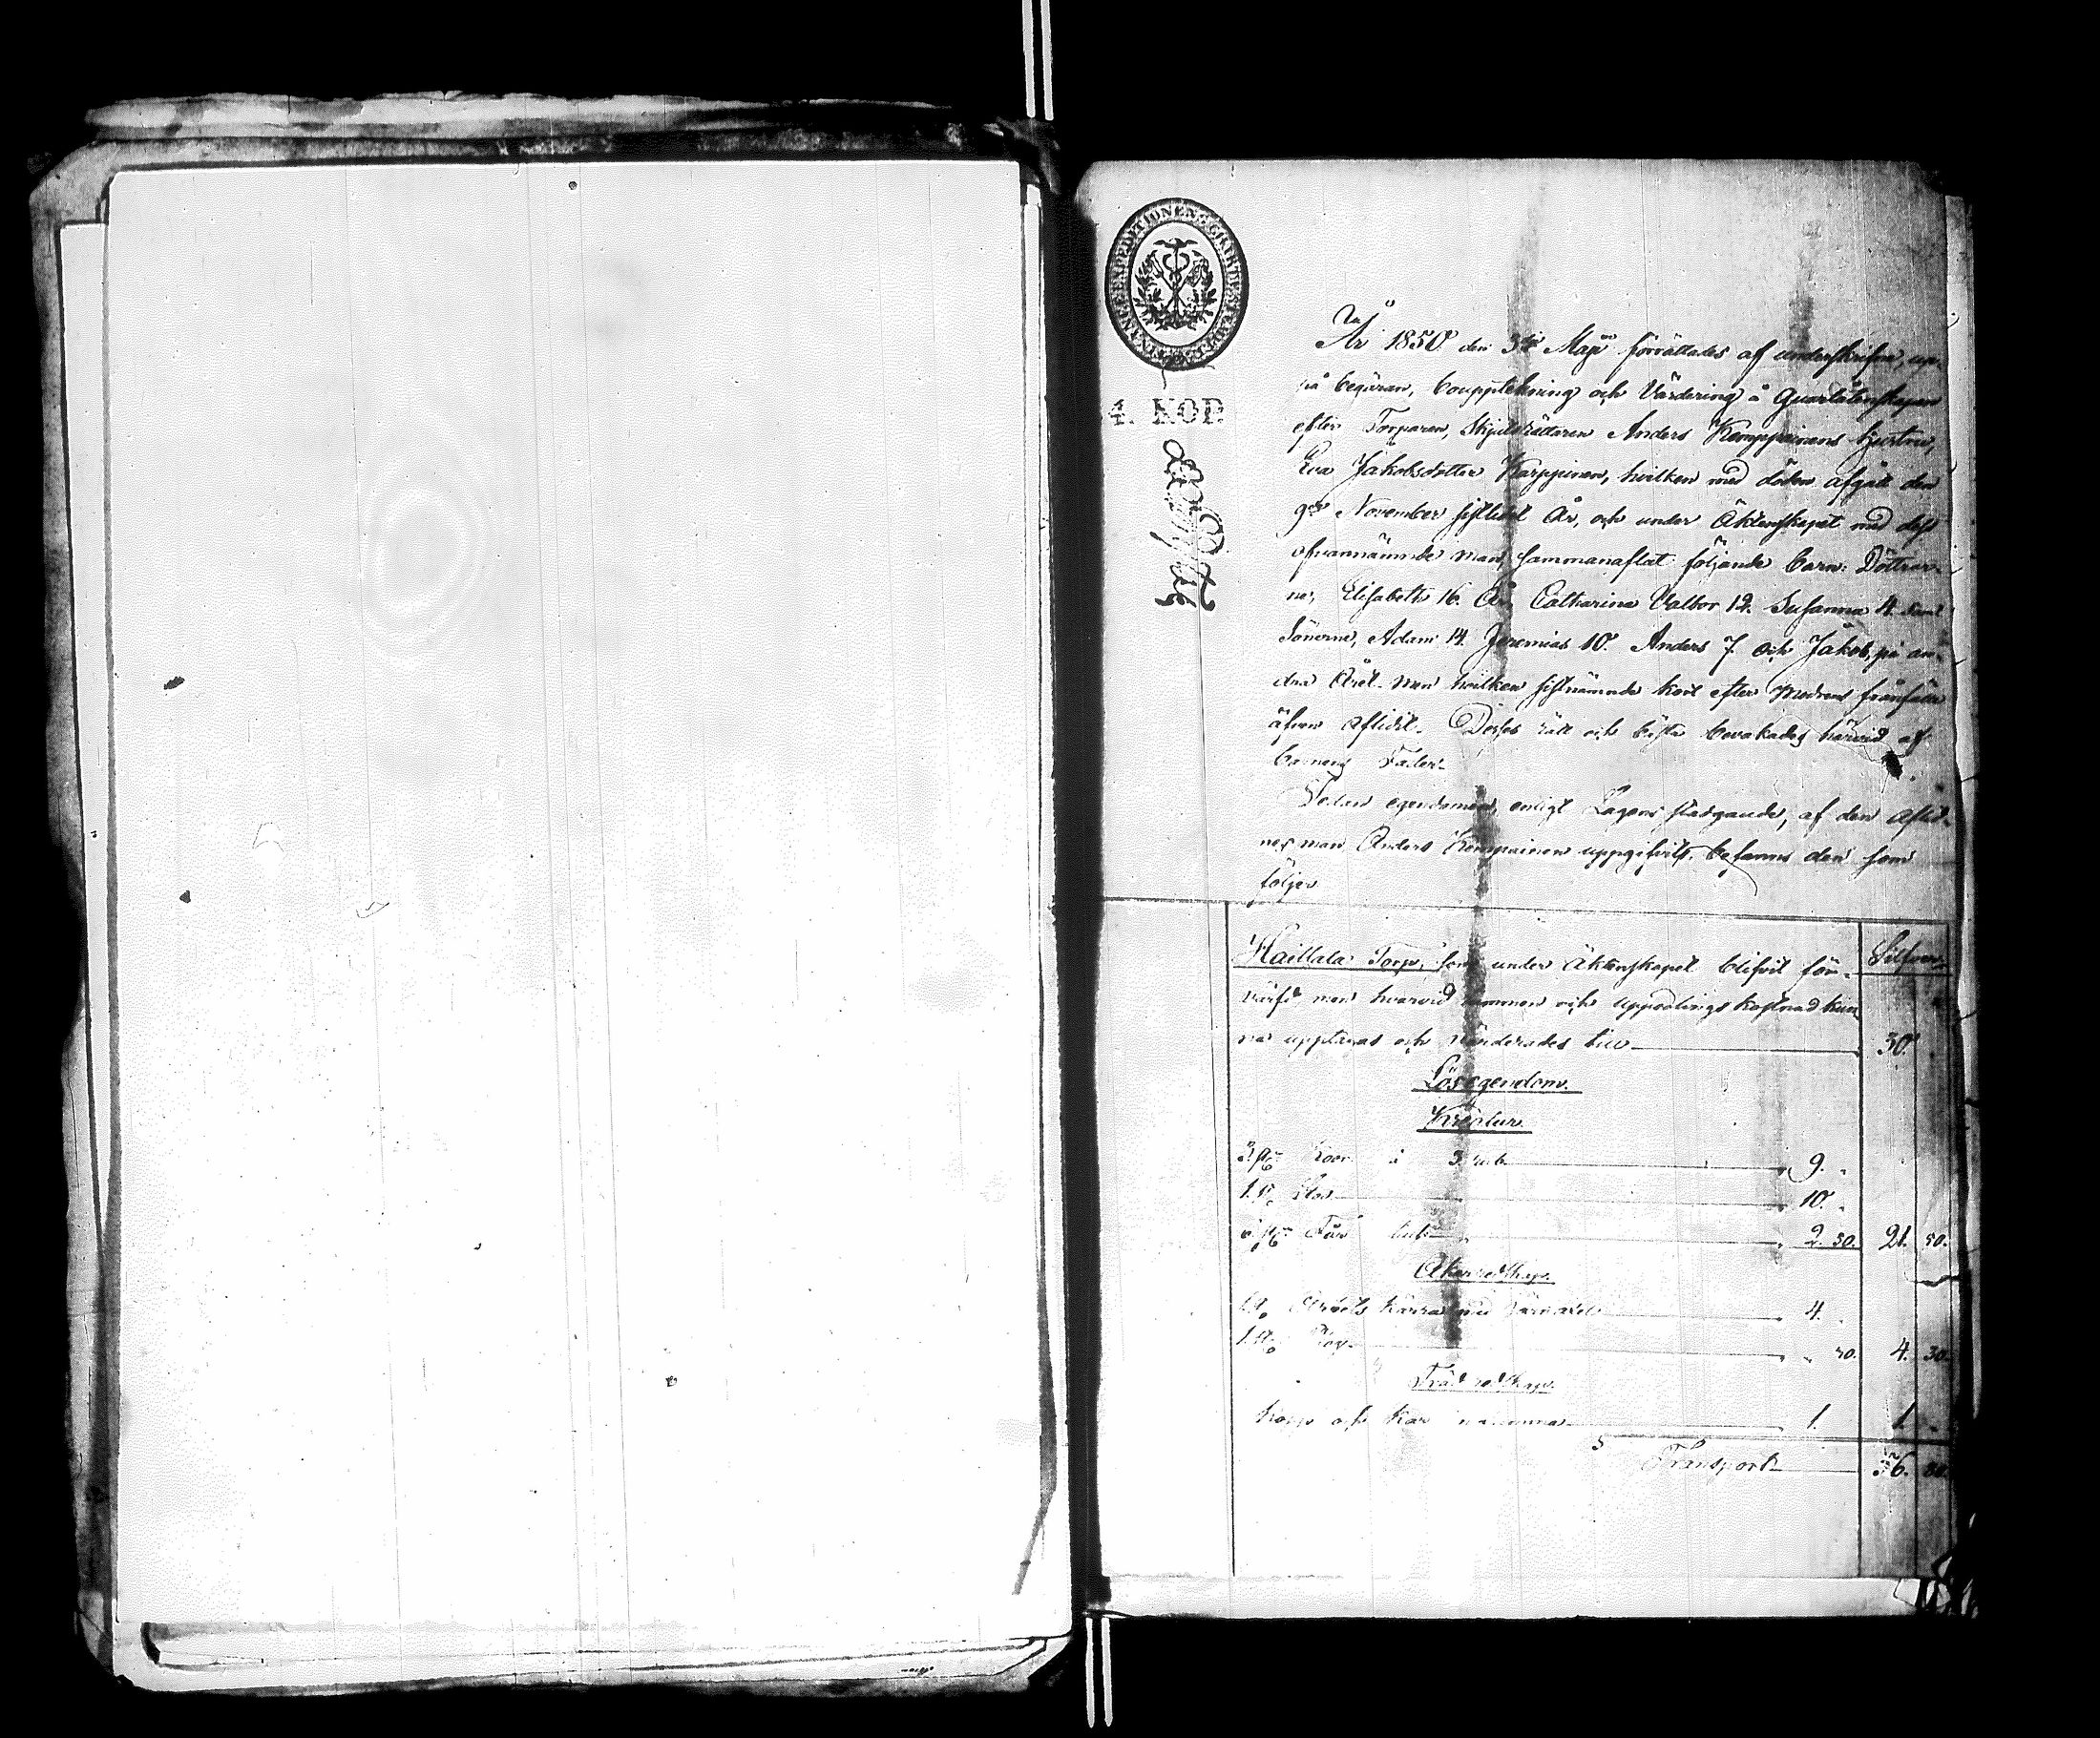 FINANCE EXPEDITIONENS
4. KOP.
År 1850 den 3die Maji förrättades af underskrifne, up-
på begäran, bouppteckning och Värdering å Qvarlåtenskapen
efter Torparen, Skjutsrättaren Anders Kemppainens hustru,
Eva Jakobsdotter Karppinen, hvilken med döden afgått den
9de November sistlidit År, och under Äktenskapet med dess
ofvannämnde man, sammanaflat följande barn: Döttrar-
ne, Elisabeth 16. År, Catharina Valbor 12. Susanna 4. samt
Sönerne, Adam 14. Jeremias 10. Anders 7. och Jakob, på an-
dra Året. men hvilken sistnämnde kort efter Modrens frånfälle
äfven aflidit. Desses rätt och bästa bevakades härvid af
barnens Fader.
Sedan egendomen, enligt Lagens stadgande, af den aflid-
nes man Anders Kemppainen uppgifvits, befanns den som
följer
Haillala Torp, som under Äktenskapet blifvit för-
Silfver
värfd men hvarvid och upodlings kostnad kun-
na upptagas och värderades till 30.
Lösegendom.
Kreatur.
3. st. Koor à 3 rub. 9.
1. st. 10.
st. Får 2. 50. 21. 50.
Åkerredskap.
1 st. Arbets kärra med 4.
1. st. 30. 4. 30.
Träd redskap.
och Kar 1. 1.
Transport 56. 80.